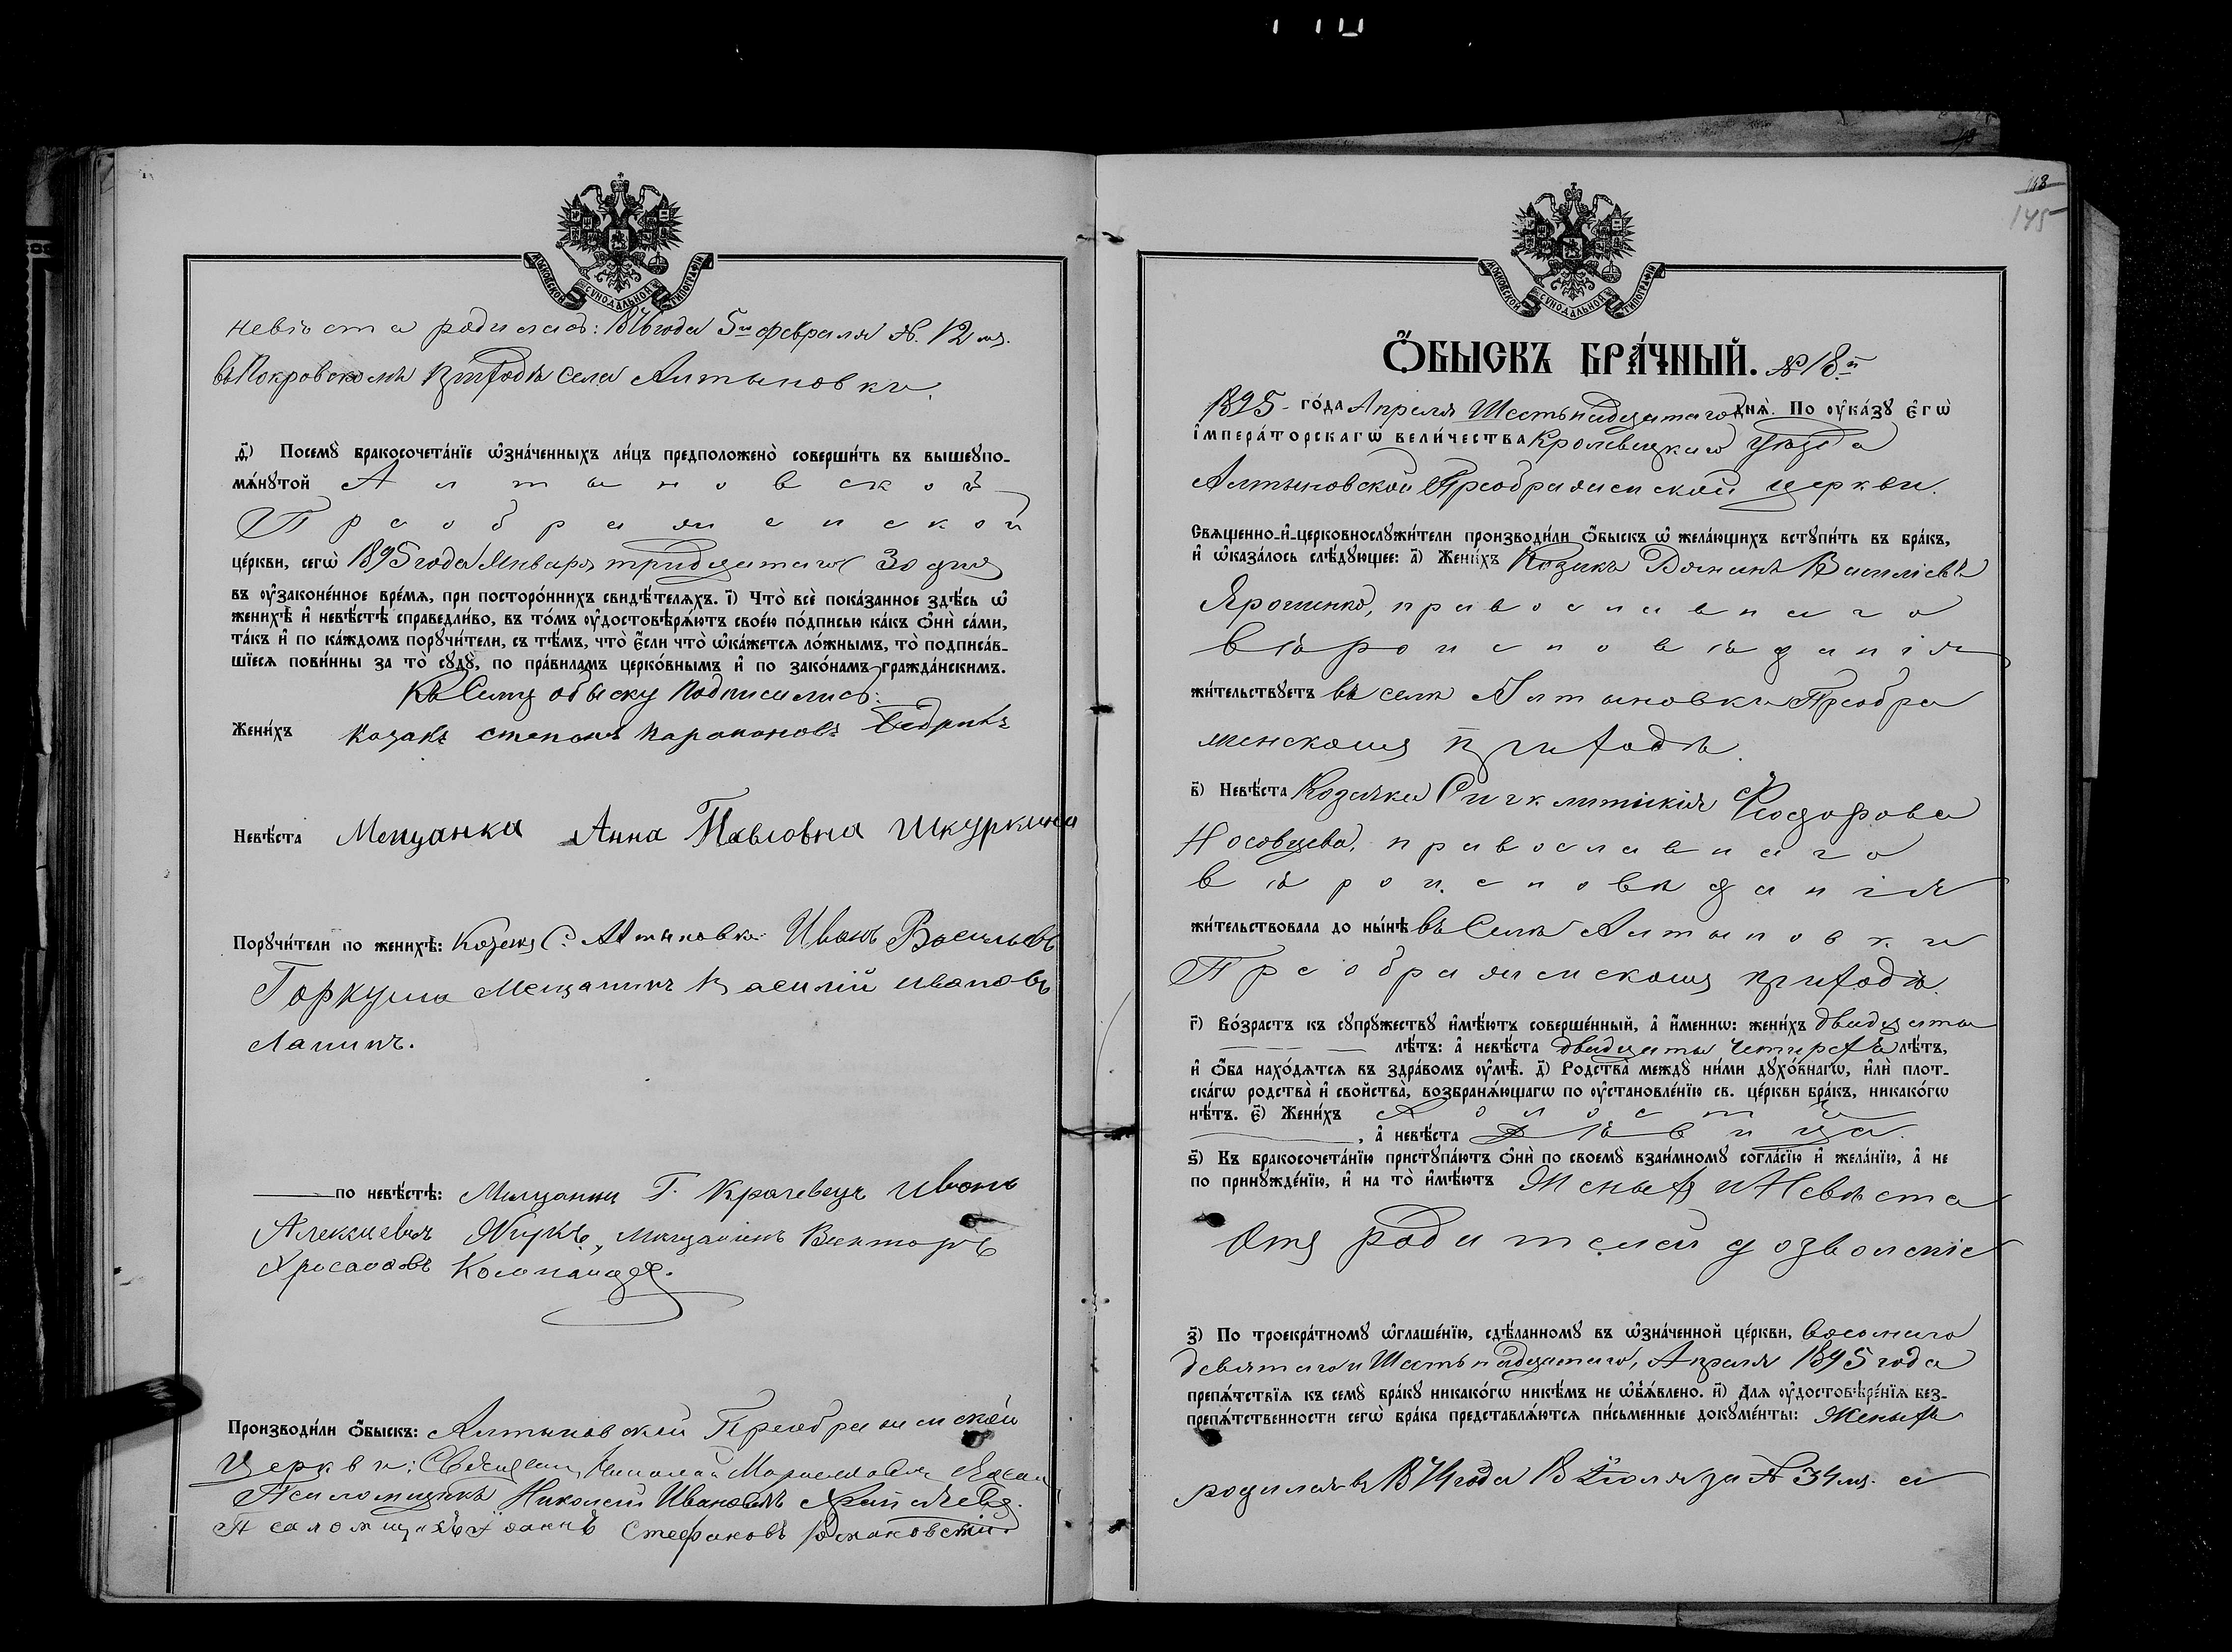 МОСКОВСКОЙ СѴНОДАЛЬНОЙ ТИПОГРАФІИ
невѣста родилась: 1876 года 5го февраля №. 12мъ.
въ Покровскомъ приходѣ села Алтыновки.
д҃) Посемꙋ̀ бракосочета́нїе ѡ҆зна́ченныхъ ли́цъ предположено̀ соверши́ть въ вышеꙋпо-
мѧ́нꙋтой Алтыновской
Преображенской
це́ркви, сегѡ̀ 1895 года Января тридцатаго 30 дня
въ ᲂу҆законе́нное вре́мѧ, при посторо́ннихъ свидѣ́телѧхъ. і҃) Что̀ всѐ пока́занное здѣ́сь ѡ҆
женихѣ̀ и҆ невѣ́стѣ справедли́во, въ то́мъ ᲂу҆достовѣрѧ́ютъ свое́ю по́дписью ка́къ ѻ҆нѝ са́ми,
та́къ и҆ по ка́ждомъ порꙋчи́тели, съ тѣ́мъ, что̀ є҆́сли что̀ ѡ҆ка́жетсѧ ло́жнымъ, то̀ подписа́в-
шїесѧ пови́нны за то̀ сꙋдꙋ̀, по пра́виламъ церко́внымъ и҆ по зако́намъ гражда́нскимъ.
Къ Сему обыску подписались:
Жени́хъ казакъ степанъ
Невѣ́ста Мещанка Анна Павловна Шкуркина
Порꙋчи́тели по женихѣ̀: Козакъ С. Алтыновки Иванъ Васильевъ
Горкуша Мещанинъ Василій ивановъ
Лапинъ.
по невѣ́стѣ: Мещанин Г. Кролевецъ Иванъ
Алексиевич, Мещанинъ Викторъ
Производи́ли ѻ҆́быскъ: Алтыновской Преображенской
Церкви: Священ. Николай
Псаломщикъ Николай Ивановъ
Псаломщикъ Іоаннъ Стефановъ
МОСКОВСКОЙ СѴНОДАЛЬНОЙ ТИПОГРАФІИ
145
Ѻ҆́БЫСКЪ БРА́ЧНЫЙ. № 18.й
1895- го́да Апреля Шестьнадцатаго днѧ̀. По ᲂу҆ка́зꙋ є҆гѡ̀
і҆мпера́торскагѡ вели́чества Кролевецкаго уѣзда
Алтыновской Преображенской церкви.
Свѧщенно-и҆-церковнослꙋжи́тели производи́ли ѻ҆́быскъ ѡ҆ жела́ющихъ вступи́ть въ бра́къ,
и҆ ѡ҆каза́лось слѣ́дꙋющее: а҃) Жени́хъ Козакъ Василіевъ
Ярошенко, православнаго
вѣроисповѣданія
жи́тельствꙋетъ въ селѣ Алтыновки Преобра
женскомъ приходѣ.
в҃) Невѣ́ста Козачка Сигклитикія Ѳеодорова
Носовцева, православнаго
вѣроисповѣданія
жи́тельствовала до ны́нѣ въ Селѣ Алтыновки
Преображенскомъ приходѣ.
г҃) Во́зрастъ къ сꙋпрꙋ́жествꙋ и҆мѣ́ютъ соверше́нный, а҆ и҆́меннѡ: жени́хъ двадцати
лѣ́тъ: а҆ невѣ́ста двадцати четирехъ лѣ́тъ,
и҆ ѻ҆́ба нахо́дѧтсѧ въ здра́вомъ ᲂу҆мѣ̀. д҃) Родства̀ междꙋ̀ ни́ми дꙋхо́внагѡ, и҆лѝ плот-
ска́гѡ родства̀ и҆ сво́йства̀, возбранѧ́ющагѡ по ᲂу҆становле́нїю св. це́ркви бра́къ, никако́гѡ
нѣ́тъ. є҃) Жени́хъ холостъ
, а҆ невѣ́ста дѣвица.
ѕ҃) Къ бракосочета́нїю пристꙋпа́ютъ ѻ҆нѝ по своемꙋ̀ взаи́мномꙋ согла́сїю и҆ жела́нїю, а҆ не
по принꙋжде́нїю, и҆ на то̀ и҆мѣ́ютъ Женихъ и Невѣста
отъ родителей дозволеніе
з҃) По троекра́тномꙋ ѡ҆глаше́нїю, сдѣ́ланномꙋ въ ѡ҆зна́ченной це́ркви, восьмаго
девятаго и Шестьнадцатаго, Апреля 1895 года
препѧ́тствїѧ къ семꙋ̀ бра́кꙋ никако́гѡ никѣ́мъ не ѡ҆б̾ѧ́влено. и҃) Длѧ ᲂу҆достовѣре́нїѧ без-
препѧ́тственности сегѡ̀ бра́ка представлѧ́ютсѧ пи́сьменные докꙋме́нты: Женихъ
родился въ 1874 года 18 Іюля за № 34мъ. а